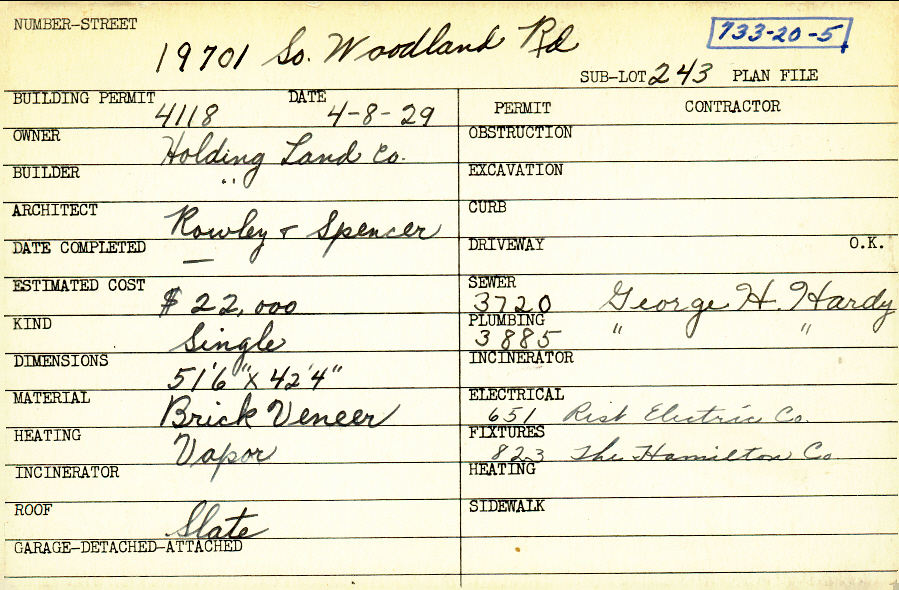 NUMBER-STREET
19701 So. Woodland Rd
733-20-5
SUB-LOT 243 PLAN FILE
BUILDING PERMIT 4118 DATE 4-8-29
OWNER Holding Land Co.
BUILDER "
ARCHITECT Rowley & Spencer
DATE COMPLETED —
ESTIMATED COST $22,000
KIND Single
DIMENSIONS 51'6" X 42'4"
MATERIAL Brick Veneer
HEATING Vapor
INCINERATOR
ROOF Slate
GARAGE-DETACHED-ATTACHED
PERMIT CONTRACTOR
OBSTRUCTION
EXCAVATION
CURB
DRIVEWAY O.K.
SEWER 3720 George H. Hardy
PLUMBING 3885 " "
INCINERATOR
ELECTRICAL 651 Risk Electric Co.
FIXTURES 823 The Hamilton Co
HEATING
SIDEWALK